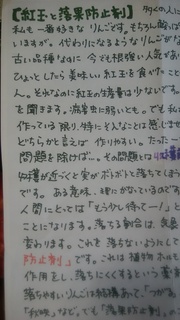 【紅玉と落果防止剤】 多くの人に
私も一番好きなりんごです。もちろん
いますが。代わりになるようなりんごが
古い品種なのに今でも根強い人気があ
ひょっとしたら美味しい紅玉を食べたこと
ん。そんなのに紅玉の作付量は少ないです。
を聞きます。病害虫に弱いとも。でも私は
作っている限り、特にそんなことは感じませ
どちらかと言えば作りやすい。たった一
問題を除けば…。その問題とは
収穫が近づくと実がボトボト落ちてくる
です。ある意味、理にかなっているので
人間にとっては「もう少し待ってー！」と
ことになります。落ちる割合は、
変わります。これを落ちないようにして
防止剤」です。これは植物ホルモ
作用をし、落ちにくくするという薬
落ちやすいりんごは結構あって、「つがる
「秋映」など。でも「落果防止剤」